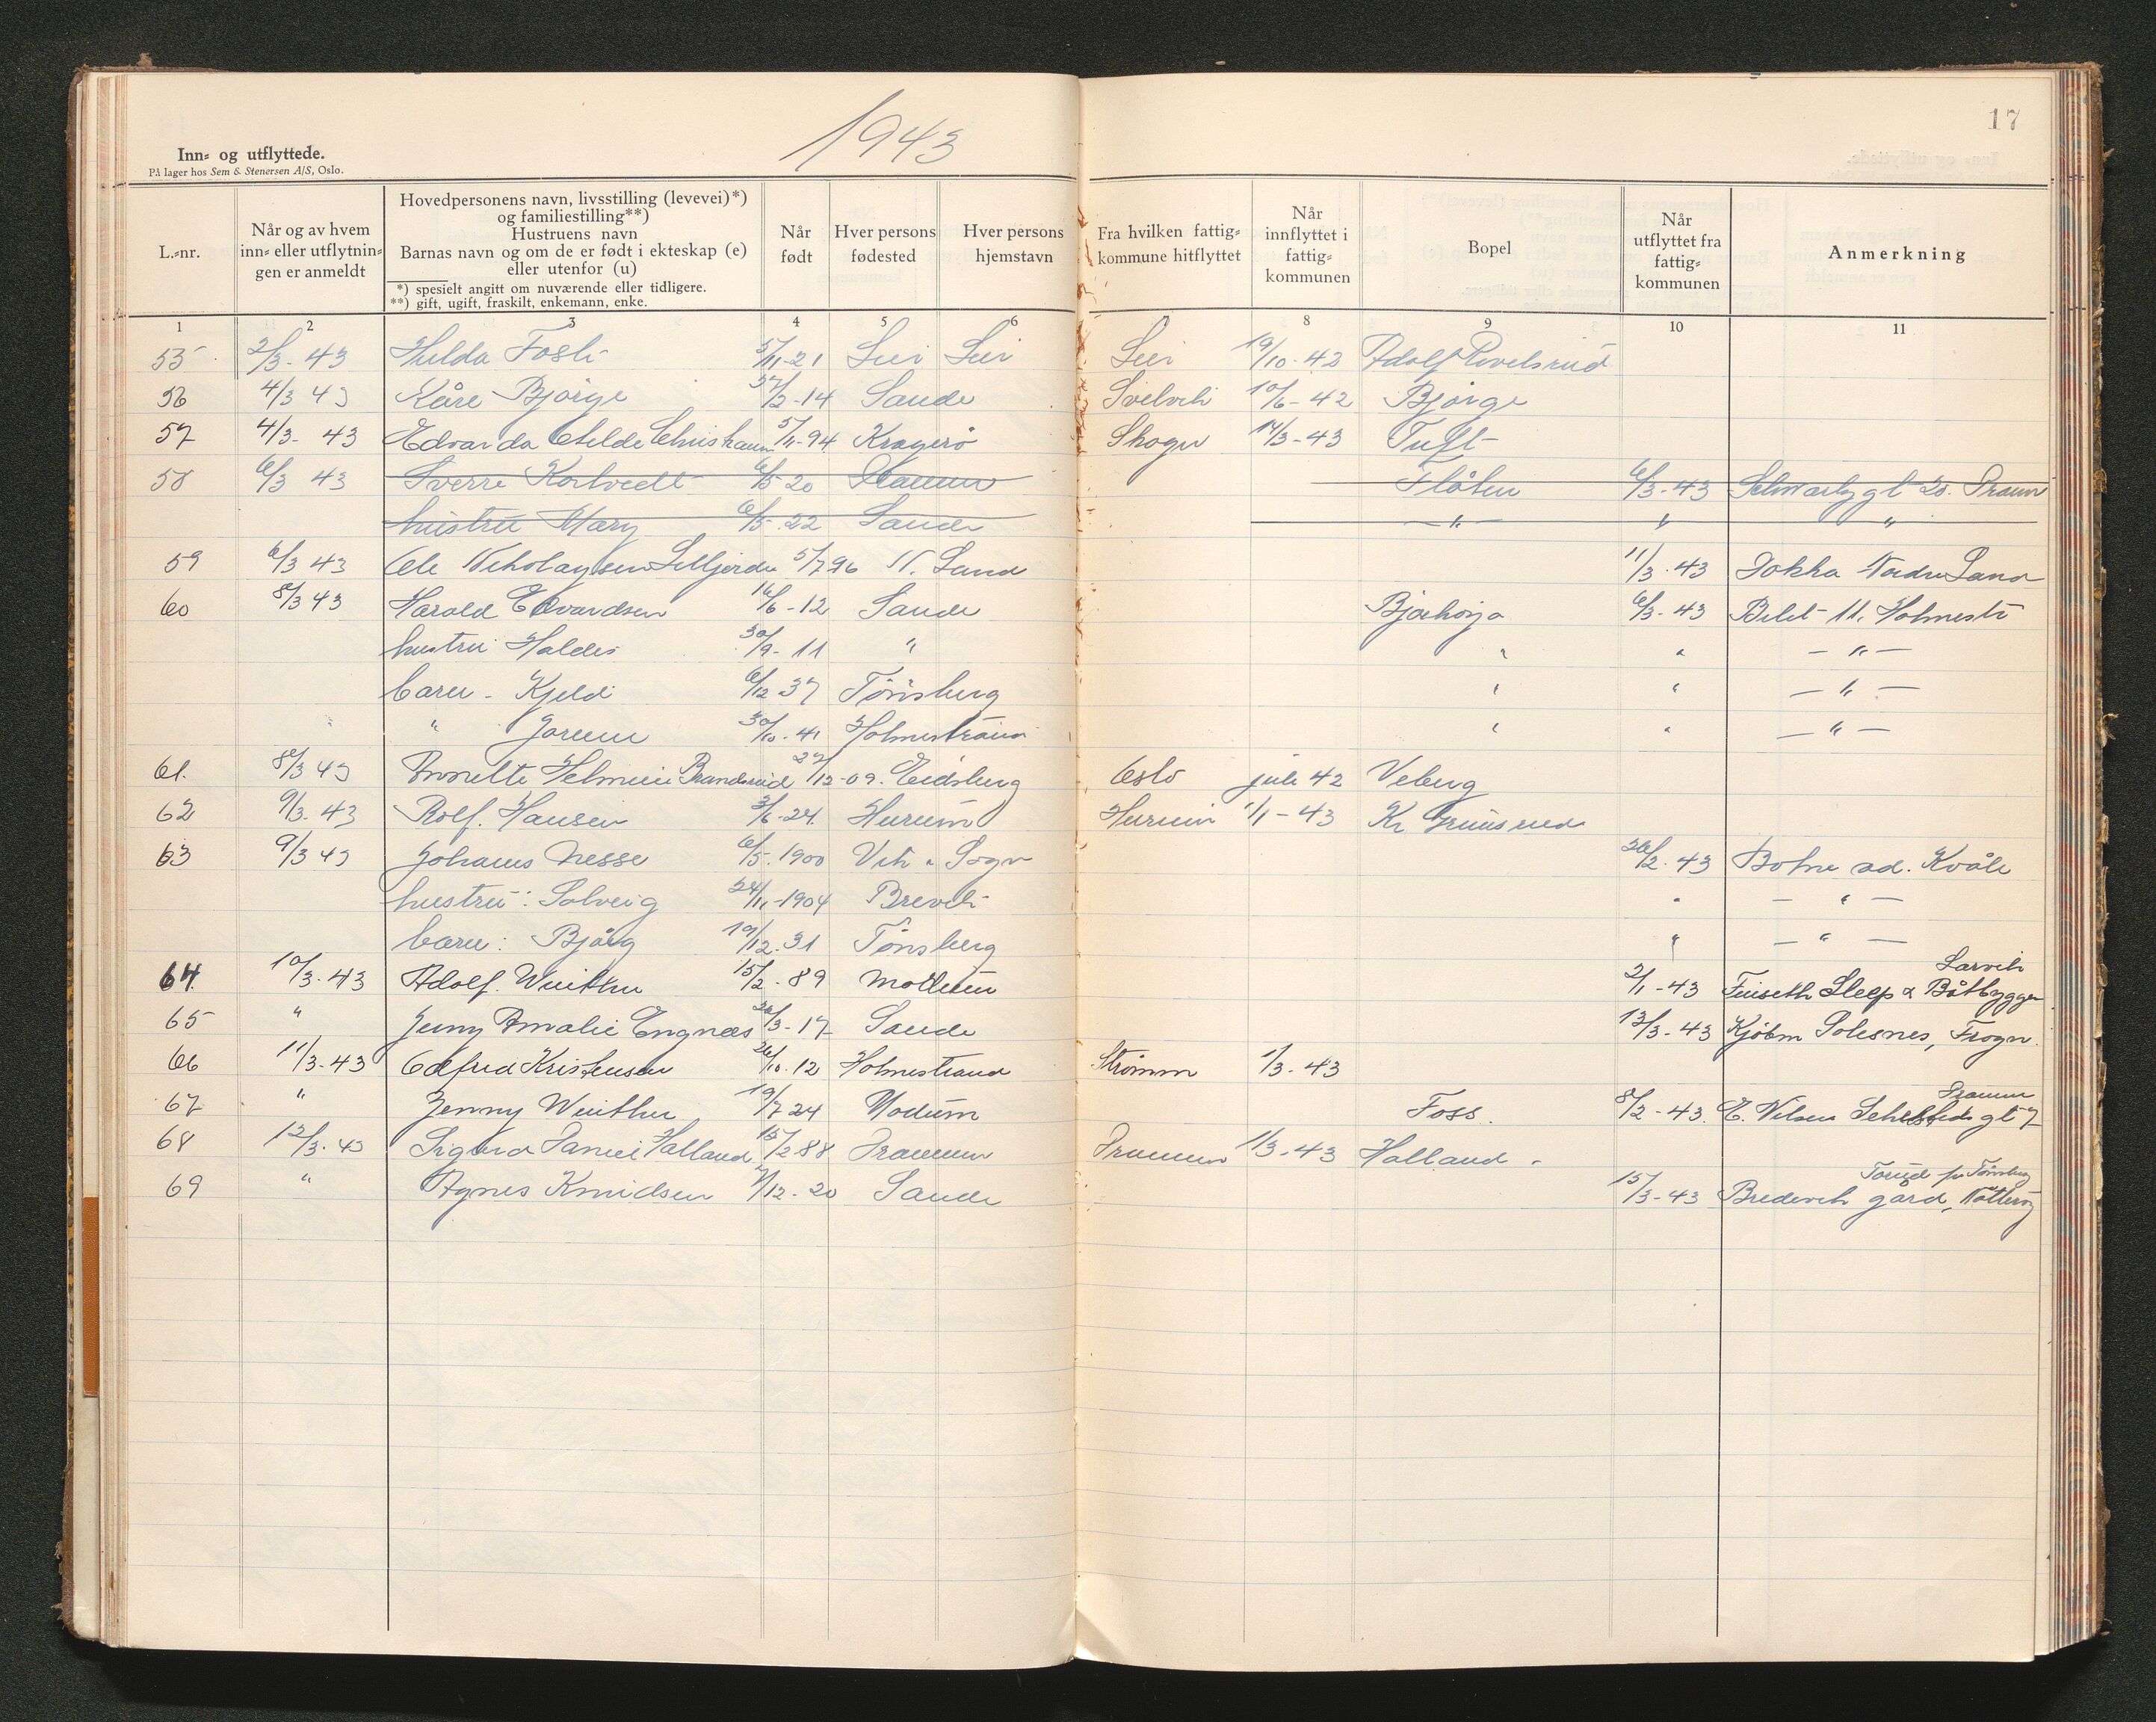 1943
17
Inn- og utflyttede.
På lager hos Sem & Stenersen A/S, Oslo.
L.-nr.
Når og av hvem inn- eller utflytnin- gen er anmeldt
Hovedpersonens navn, livsstilling (levevei)*) og familiestilling**)
Hustruens navn
Barnas navn og om de er født i ekteskap (e) eller utenfor (u)
*) spesielt angitt om nuværende eller tidligere.
**) gift, ugift, fraskilt, enkemann, enke.
Når født
Hver persons fødested
Hver persons hjemstavn
Fra hvilken fattig- kommune hitflyttet
Når innflyttet i fattig- kommunen
Bopel
Når utflyttet fra fattig- kommunen
Anmerkning
1 2 3 4 5 6 7 8 9 10 11
55 2/3-43 Hulda Fosli 5/11-21 Lier Lier Lier 19/10-42 Adolf Rovelsrud
56 4/3 43 Kåre Bjørge /2-14 Sande Svelvik 10/6-42 Bjørge
57 4/3-43 Edvarda 5/11-94 Kragerø Skoger 14/3-43 Tuft
58 6/3 43 Sverre Kortvedt 6/5 20 Flåten 6/3-43 20. Dramm
hustru Mary 6/5-22 Sande -"- " "
59 6/3 43 Ole Nikolaysen 5/7 96 N. Land 11/3-43 Dokka Nordre Land
60 8/3 43 Harald Edvardsen 16/6-12 Sande 6/3-43 11. Holmestr
hustru Haldis 30/9-11 " " " -"-
barn - Kjeld 6/12 37 Tønsberg " " -"-
" Jorunn 30/10-41 Holmestrand " " -"-
61. 8/3 43 Annette Helmine Brandsrud 27/12-09. Eidsberg Oslo juli 42 Veberg
62 9/3-43 Rolf. Hansen 3/6-24. Hurum Hurum 1/1-43 Kr Grimsrud
63 9/3 43 Johannes Nesse 6/5-1900 Vik i Sogn 26/2-43 Botne ad. Kvåle
hustru: Solveig 24/11-1904 Brevik " -"-
barn: Bjørg 19/12.31 Tønsberg " -"-
64. 10/3-43 Adolf. Winther 15/2-89 Modum 2/1-43 Finseth Slepp & Båtbygger Larvik
65 " Jenny Amalie Engnæs 20/3-17 Sande 13/3-43 Kjøbm Solesnes, Frogn.
66 11/3-43 Odfred Kristensen 26/10.12 Holmestrand Strømm 1/3-43
67 " Jenny Winther 19/7 24 Modum Foss. 8/2-43. E. Nilsen Schesteds gt 7 Dramm
68 12/3-43 Sigurd Daniel Halland 15/2 88 Drammen Drammen 1/3-43 Halland
69 " Agnes Knudsen /12-20 Sande 15/3-43 Bredevik gård, Nøtterøy Torød pr Tønsberg